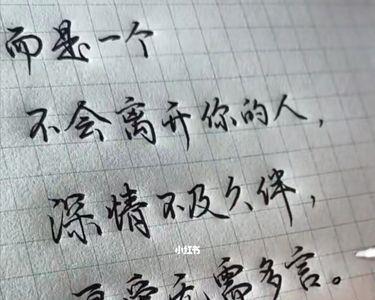 而是一个
不会离开你的人，
深情不及久伴，
小红书
厚爱无需多言。